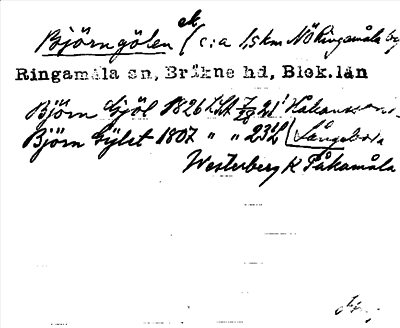 ek
Björngölen (c:a 1,5 km NÖ Ringamåla by
Ringamåla sn, Bräkne hd, Blek.län
Björn Gjöl 1826 Håkansson
Björn Gylet 1807 " " Långeboda
Westerberg K Påkamåla